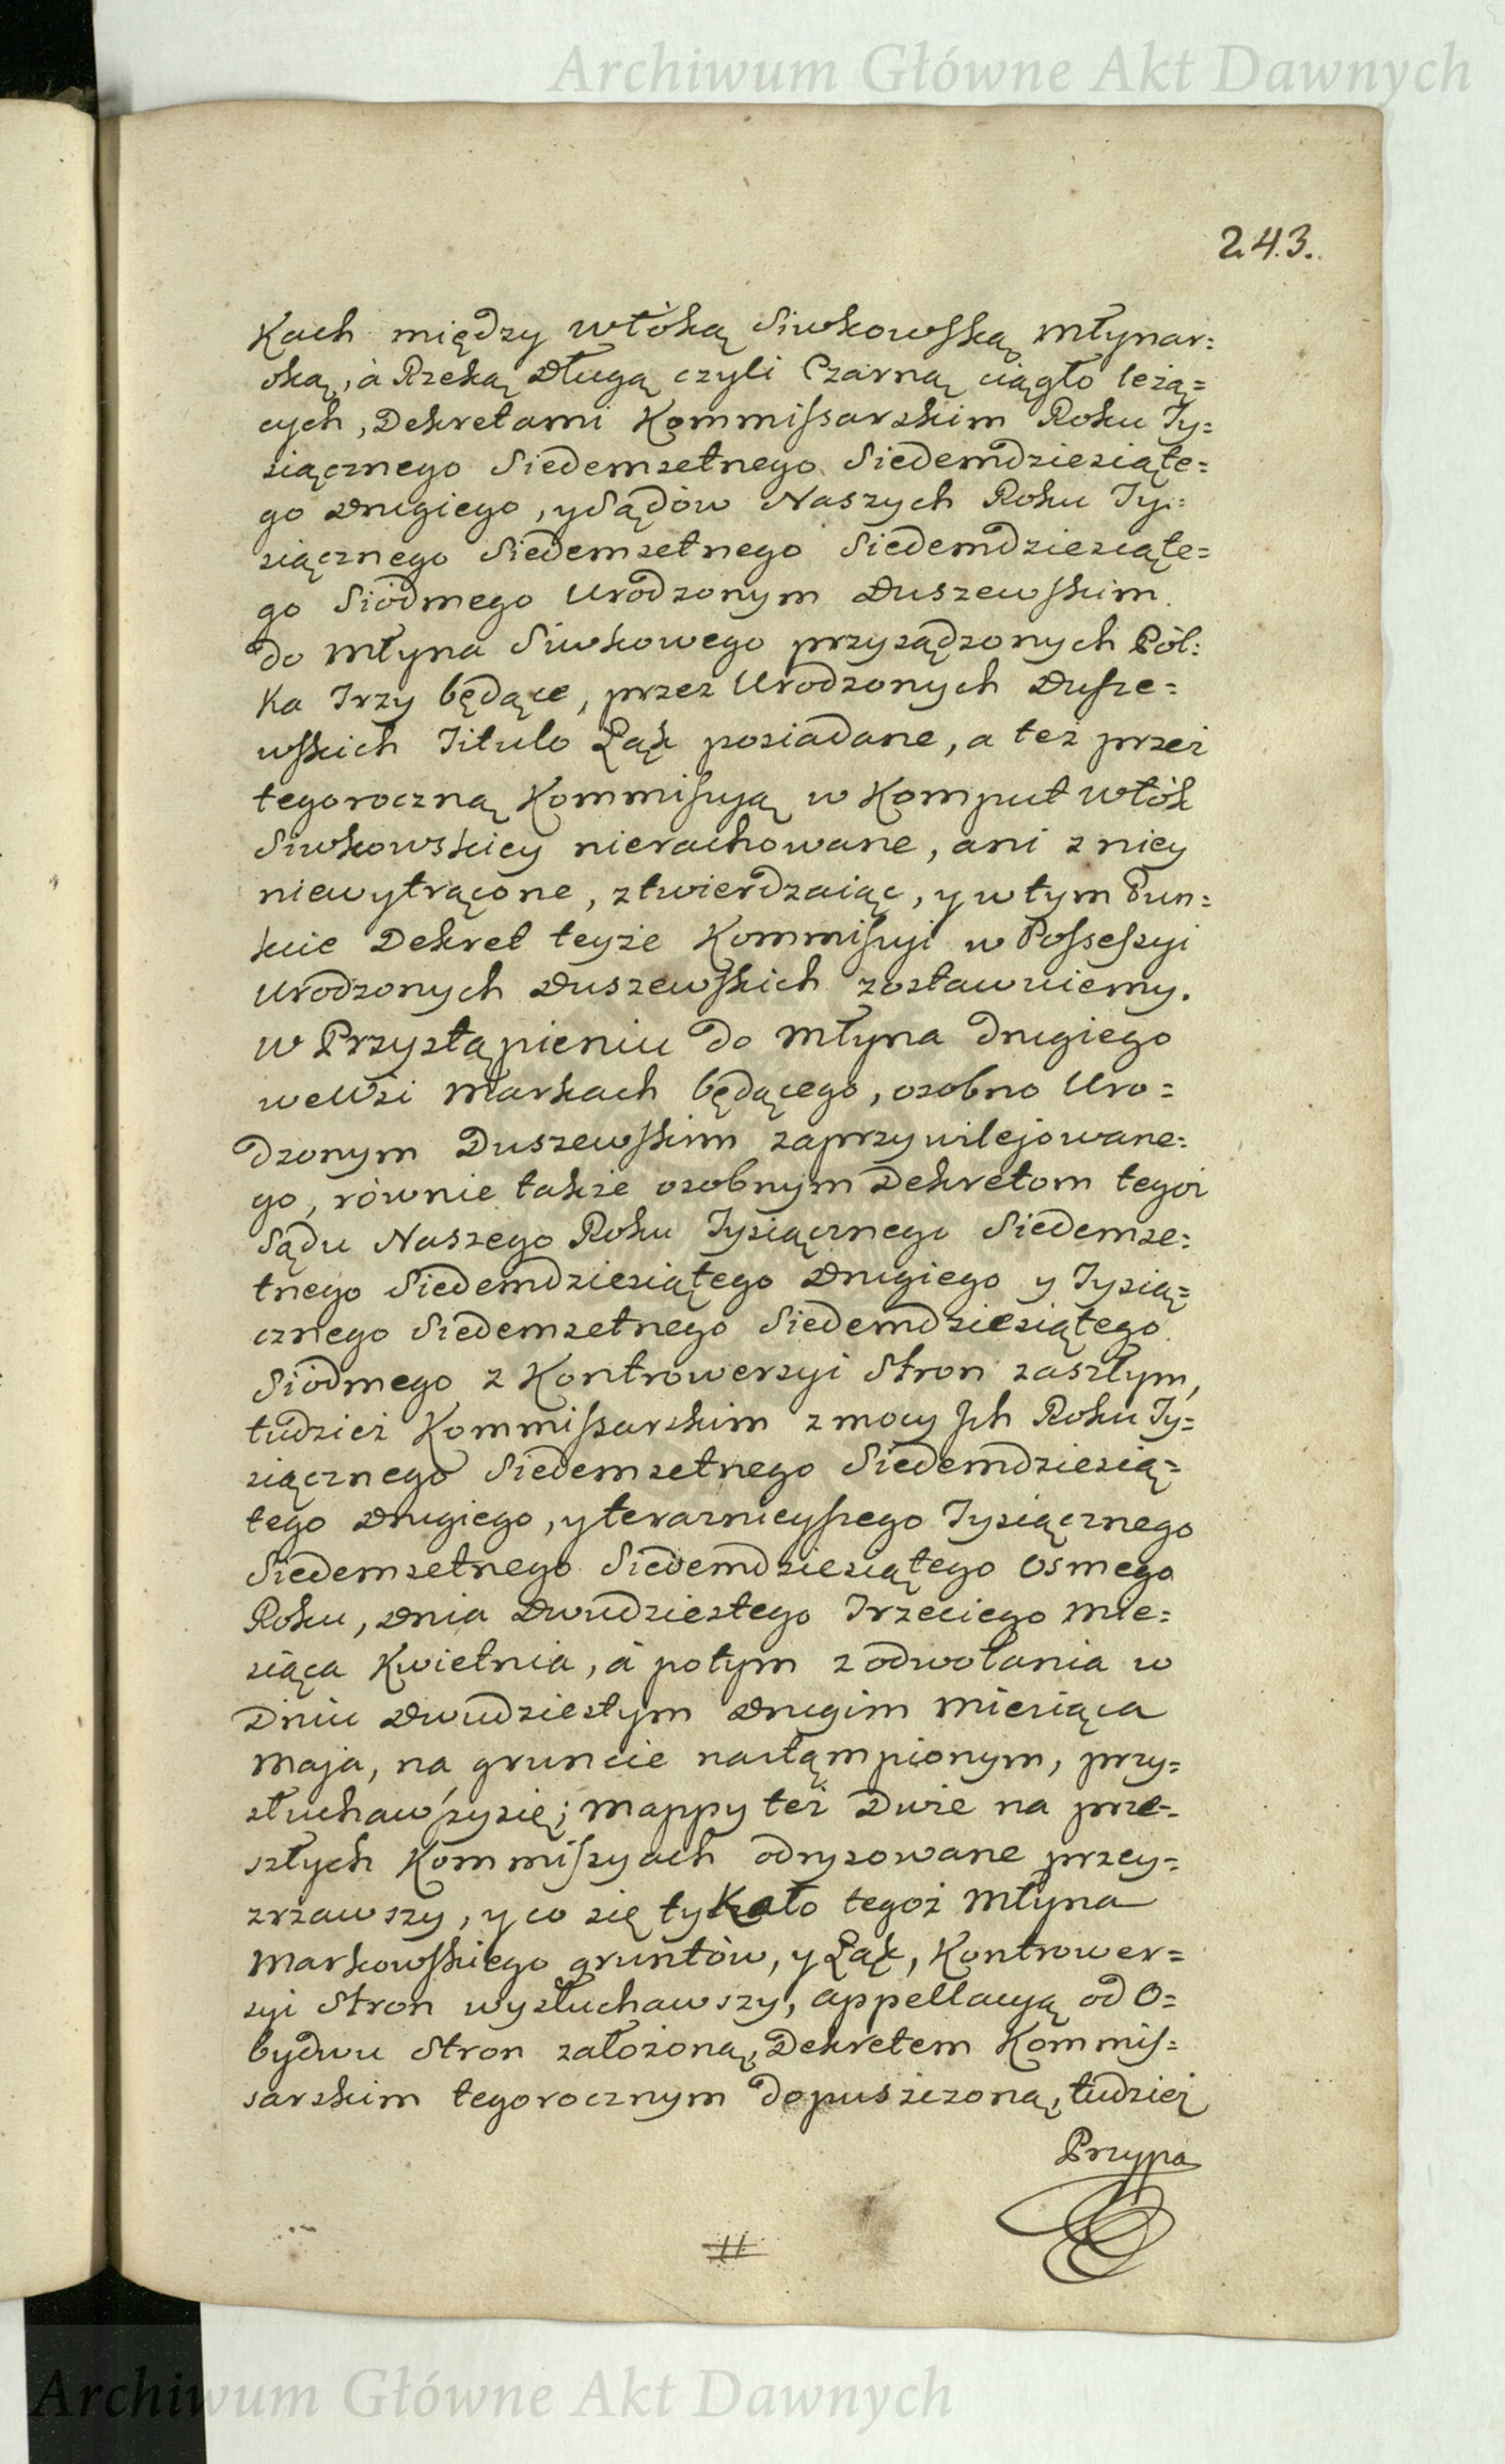 Archiwum Główne Akt Dawnych
243.
Kach między włóką Siwkowską Młynar=
ską, à Rzeką Długą czyli Czarną ciągło leżą=
cych, Dekretami Kommissarskim Roku Ty=
siącznego Siedemsetnego Siedemdziesiąte=
go Drugiego, y Sądów Naszych Roku Ty=
siącznego Siedemsetnego Siedemdziesiąte=
go Siódmego Urodzonym Duszewskim
do Młyna Siwkowego przysądzonych Pół=
ka Trzy będące, przez Urodzonych Dusze=
wskich Titulo Łąk posiadane, a też przez
tegoroczną Kommissyą w Komput włók
Siwkowskiey nierachowane, ani z niey
niewytrącone, ztwierdzaiąc, y w tym Pun=
kcie Dekret teyże Kommissyi w Possessyi
Urodzonych Duszewskich zostawuiemy.
W Przystąpieniu do Młyna drugiego
we Wsi Markach będącego, osobno Uro=
dzonym Duszewskim zaprzywilejowane=
go, równie także osobnym Dekretom tegoż
Sądu Naszego Roku Tysiącznego Siedemse=
tnego Siedemdziesiątego Drugiego y Tysią=
cznego Siedemsetnego Siedemdziesiątego
Siódmego z Kontrowersyi Stron zaszłym,
tudzież Kommissarskim z mocy Jch Roku Ty=
siącznego Siedemsetnego Siedemdziesią=
tego Drugiego, y teraznieyszego Tysiącznego
Siedemsetnego Siedemdziesiątego Osmego
Roku, Dnia Dwudziestego Trzeciego Mie=
siąca Kwietnia, à potym z odwołania w
Dniu Dwudziestym Drugim Miesiąca
Maja, na gruncie nastąmpionym, przy=
słuchawszysię; Mappy też Dwie na prze=
szłych Kommissyach odrysowane przey=
zrzawszy, y co się tykało tegoż Młyna
Markowskiego gruntów, y Łąk, Kontrower=
syi Stron wysłuchawszy, appellacyą od O=
bydwu Stron założoną, Dekretem Kommis=
sarskim tegorocznym dopuszczoną, tudzież
Przypa
Archiwum Główne Akt Dawnych